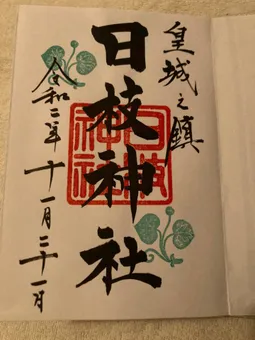 皇城之鎮
日枝神社
日枝
神社
令和二年十一月二十一日